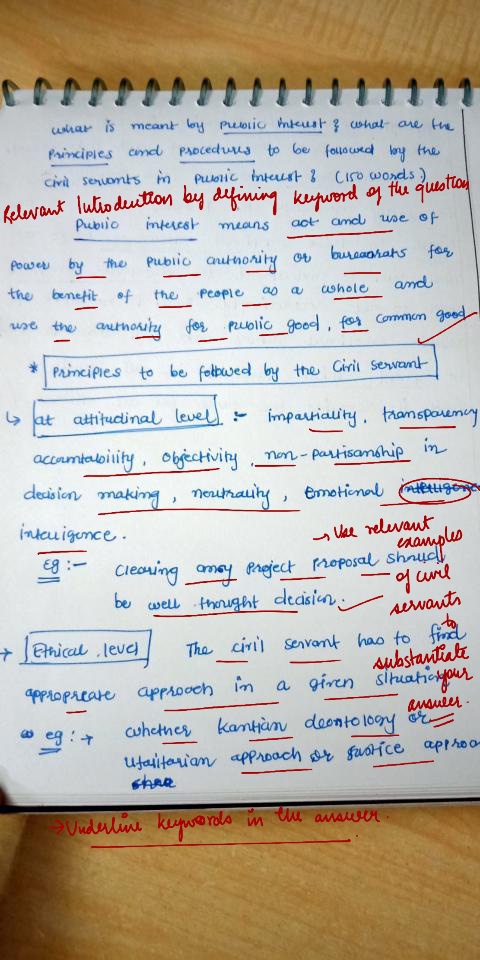 what is meant by Public Interest? what are the
Principles and procedures to be followed by the
civil servants in Public Interest? (150 words)
Relevant Introduction by defining keyword of the question
Public interest means act and use of
power by the public authority or bureacrats for
the benefit of the people as a whole and
use the authority for public good, for common good
* Principles to be followed by the Civil servant
↳ at attitudinal level :- impartiality, transparency
accountability, objectivity, non-partisanship in
decision making, neutrality, Emotional
intelligence.
→ Use relevant
examples
of civil
servants
to
substantiate
your
answer.
eg :- Clearing any project proposal should
be well thought decision.
→ Ethical level The civil servant has to find
appropreate approach in a given situation
eg :→ whether kantian deontology or
utilitarian approach or justice approa
→ Underline keywords in the answer.